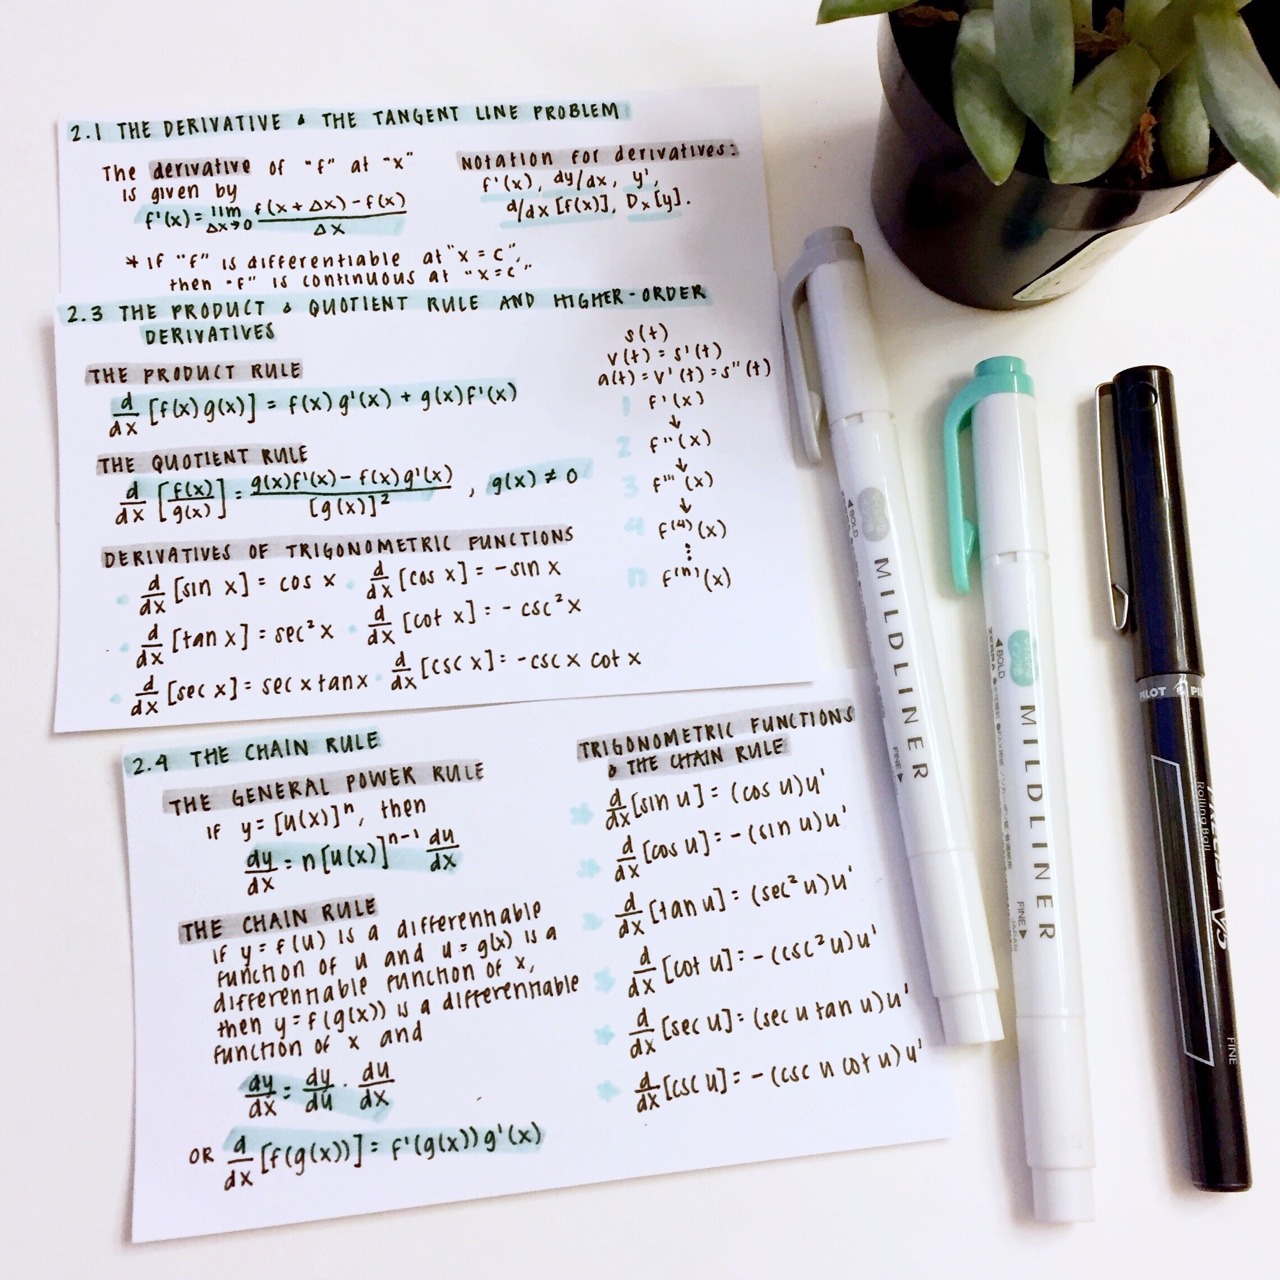 2.1 THE DERIVATIVE & THE TANGENT LINE PROBLEM
The derivative of "f" at "x"
is given by
f'(x) = lim Δx→0 f(x + Δx) - f(x) / Δx
Notation for derivatives:
f'(x), dy/dx, y',
d/dx [f(x)], Dx[y].
* If "f" is differentiable at "x = c",
then "f" is continuous at "x = c"
2.3 THE PRODUCT & QUOTIENT RULE AND HIGHER-ORDER
DERIVATIVES
THE PRODUCT RULE
d/dx [f(x)g(x)] = f(x)g'(x) + g(x)f'(x)
THE QUOTIENT RULE
d/dx [f(x)/g(x)] = g(x)f'(x) - f(x)g'(x) / [g(x)]², g(x) ≠ 0
DERIVATIVES OF TRIGONOMETRIC FUNCTIONS
d/dx [sin x] = cos x • d/dx [cos x] = -sin x
d/dx [tan x] = sec² x • d/dx [cot x] = - csc² x
d/dx [sec x] = sec x tan x • d/dx [csc x] = -csc x cot x
s(t)
v(t) = s'(t)
a(t) = v'(t) = s''(t)
1 f'(x)
↓
2 f''(x)
↓
3 f'''(x)
↓
4 f⁽⁴⁾(x)
⋮
n f⁽ⁿ⁾(x)
2.4 THE CHAIN RULE
THE GENERAL POWER RULE
IF y = [u(x)]ⁿ, then
dy/dx = n[u(x)]ⁿ⁻¹ du/dx
THE CHAIN RULE
If y = f(u) is a differentiable
function of u and u = g(x) is a
differentiable function of x,
then y = f(g(x)) is a differentiable
function of x and
dy/dx = dy/du · du/dx
OR d/dx [f(g(x))] = f'(g(x))g'(x)
TRIGONOMETRIC FUNCTIONS
& THE CHAIN RULE
d/dx [sin u] = (cos u)u'
d/dx [cos u] = -(sin u)u'
d/dx [tan u] = (sec² u)u'
d/dx [cot u] = -(csc² u)u'
d/dx [sec u] = (sec u tan u)u'
d/dx [csc u] = -(csc u cot u)u'
BOLD
MILDLINER
FINE
BOLD
ZEBRA
MILDLINER
FINE
JAPAN
PILOT
Rolling Ball
V5
FINE